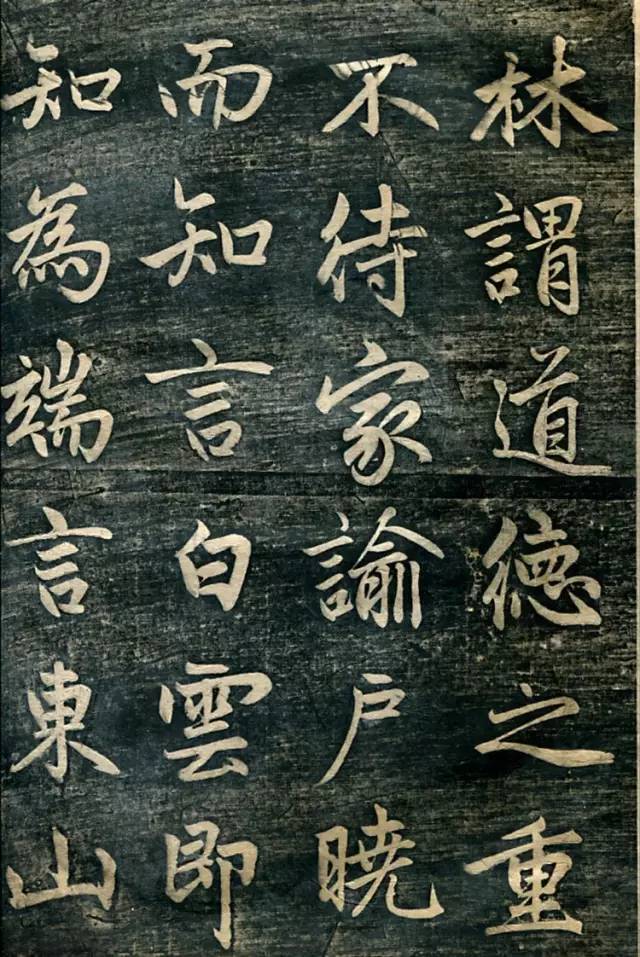 林謂道德之重
不待家諭戶曉
而知言白雲即
知為端言東山